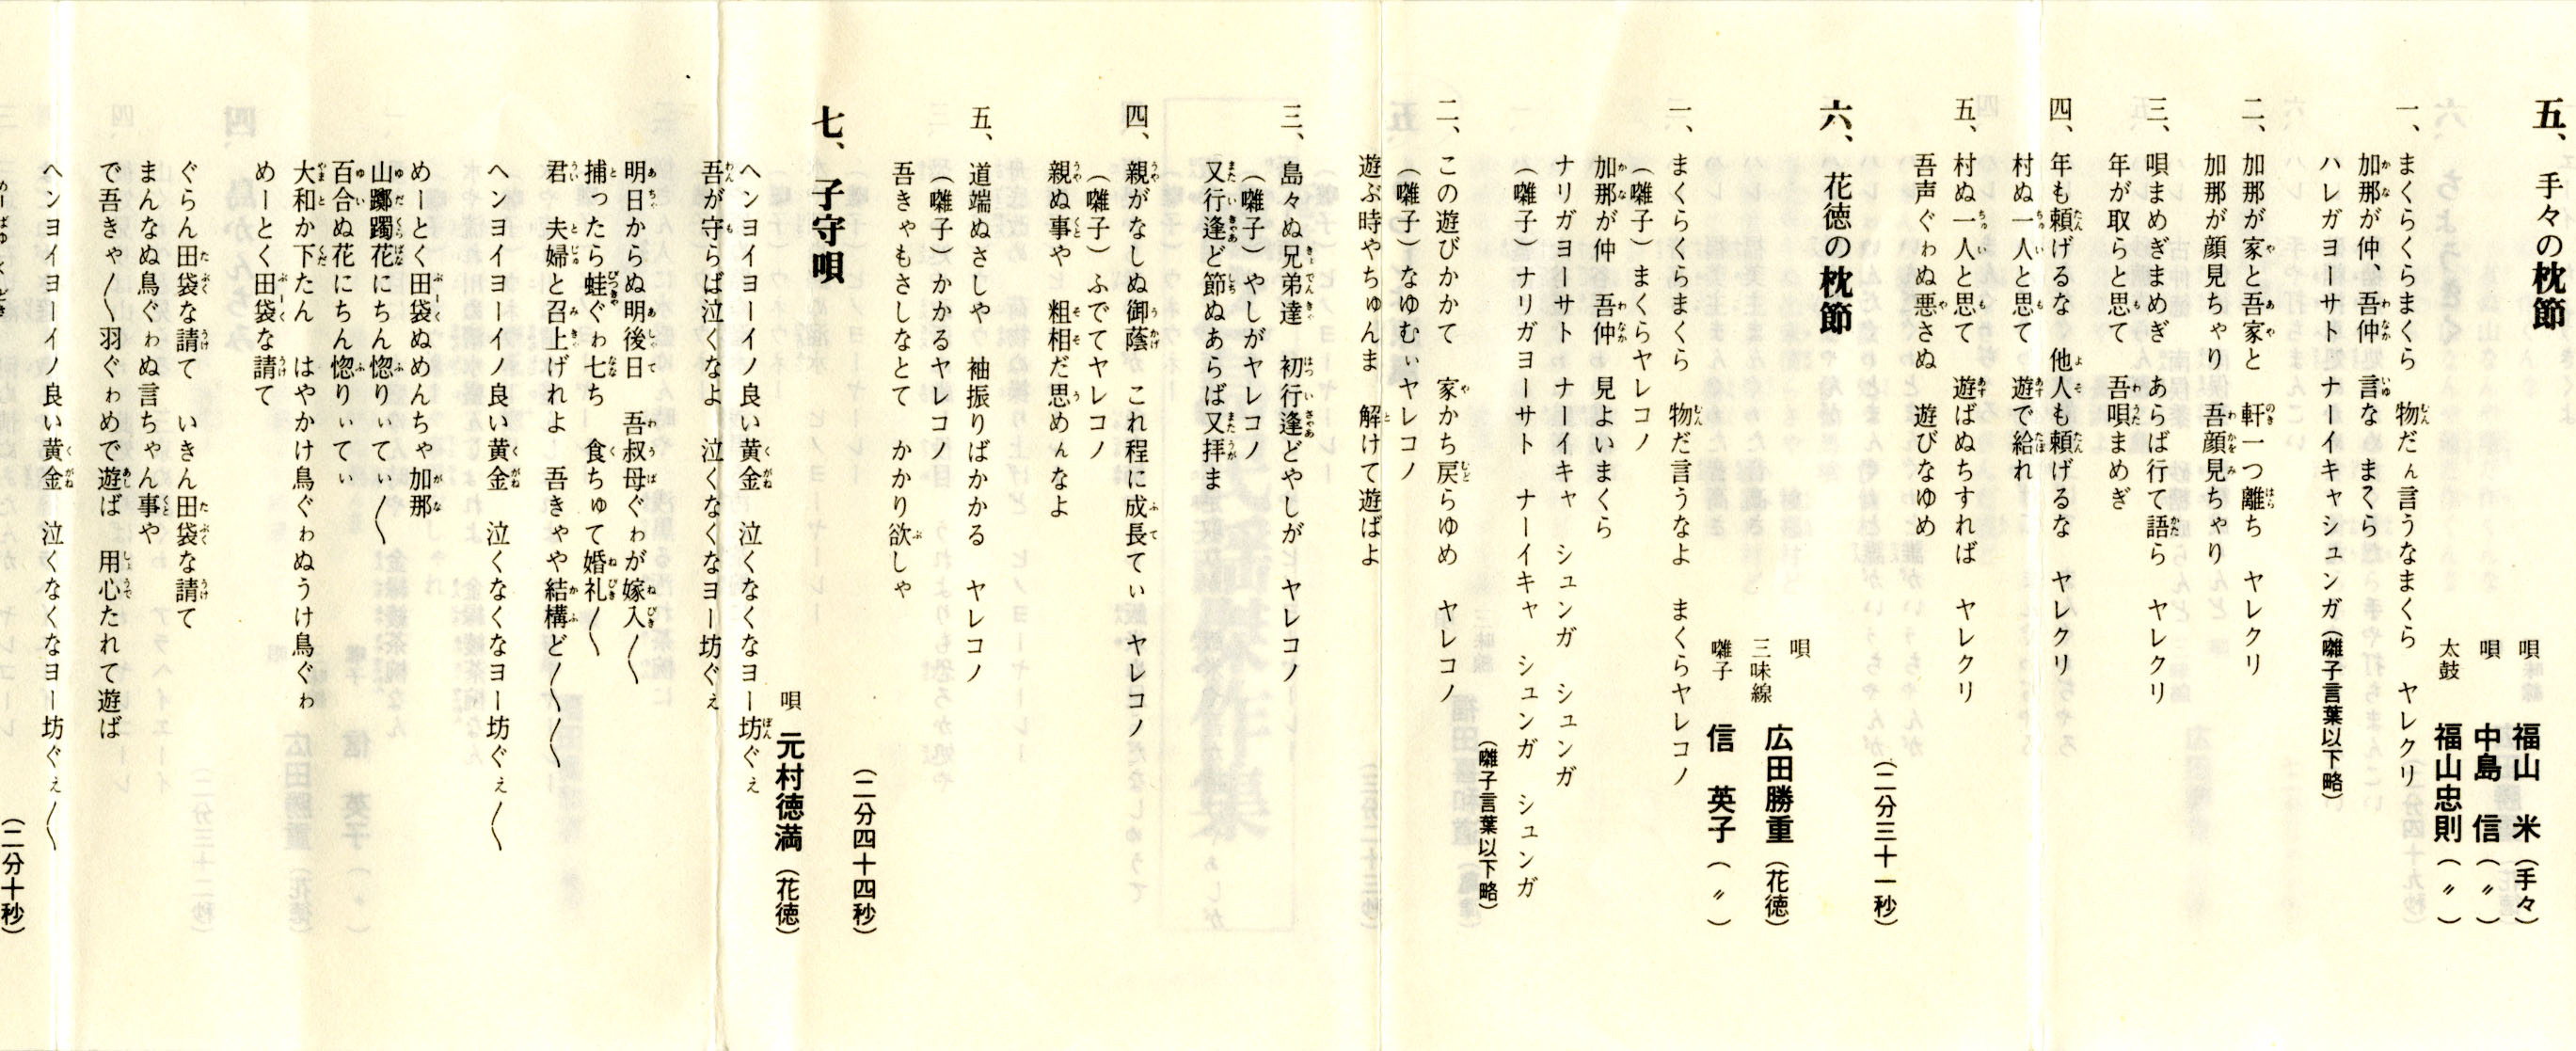 五、手々の枕節
唄　福山　米（手々）
唄　中島　信（〃）
太鼓　福山忠則（〃）
一、まくらくらまくら　物だん言うなまくら　ヤレクリ
加那が仲、吾仲　言な　まくら
ハレガヨーサト　ナーイキャシュンガ（囃子言葉以下略）
二、加那が家と吾家と　軒一つ離ち　ヤレクリ
加那が顔見ちゃり　吾顔見ちゃり
三、唄まめぎまめぎ　あらば行て語ら　ヤレクリ
年が取らと思て　吾唄まめぎ
四、年も頼げるな　他人も頼げるな　ヤレクリ
村ぬ一人と思て　遊で給れ
五、村ぬ一人と思て　遊ばぬちすれば　ヤレクリ
吾声ぐゎぬ悪さぬ　遊びなゆめ
（二分三十一秒）
六、花徳の枕節
唄
三味線　広田勝重（花徳）
囃子　信　英子（〃）
一、まくらくらまくら　物だ言うなよ　まくらヤレコノ
（囃子）まくらヤレコノ
加那が仲　吾仲　見よいまくら
ナリガヨーサト　ナーイキャ　シュンガ　シュンガ
（囃子）ナリガヨーサト　ナーイキャ　シュンガ　シュンガ
（囃子言葉以下略）
二、この遊びかかて　家かち戻らゆめ　ヤレコノ
（囃子）なゆむぃヤレコノ
遊ぶ時やちゅんま　解けて遊ばよ
三、島々ぬ兄弟達　初行逢どやしが　ヤレコノ
（囃子）やしがヤレコノ
又行逢ど節ぬあらば又拝ま
四、親がなしぬ御蔭　これ程に成長てぃ　ヤレコノ
（囃子）ふでてヤレコノ
親ぬ事や　粗相だ思めんなよ
五、道端ぬさしや　袖振りばかかる　ヤレコノ
（囃子）かかるヤレコノ
吾きゃもさしなとて　かかり欲しゃ
（二分四十四秒）
七、子守唄
唄　元村徳満（花徳）
ヘンヨイイヨーイノ良い黄金　泣くなくなヨー坊ぐぇ
吾が守らば泣くなよ　泣くなくなヨー坊ぐぇ
明日からぬ明後日　吾叔母ぐゎが嫁入〳〵
捕ったら蛙ぐゎ七ち　食ちゅて婚礼〳〵
君　夫婦と召上げれよ　吾きゃや結構ど〳〵〳〵
ヘンヨイイヨーイノ良い黄金　泣くなくなヨー坊ぐぇ〳〵
めーとく田袋ぬめんちゃ加那
山躑躅花にちん惚りぃてぃ〳〵
百合ぬ花にちん惚りぃてぃ
大和か下たん　はやかけ鳥ぐゎぬうけ鳥ぐゎ
めーとく田袋な請て
ぐらん田袋な請て　いきん田袋な請て
まんなぬ鳥ぐゎぬ言ちゃん事や
で吾きゃ〳〵羽ぐゎめで遊ば　用心たれて遊ば
ヘンヨイイヨーイノ良い黄金　泣くなくなヨー坊ぐぇ〳〵
（二分十秒）